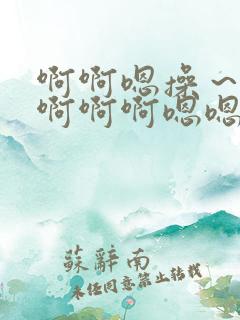 啊啊嗯操～
啊啊啊嗯嗯
蘇辭南
未经同意禁止转载